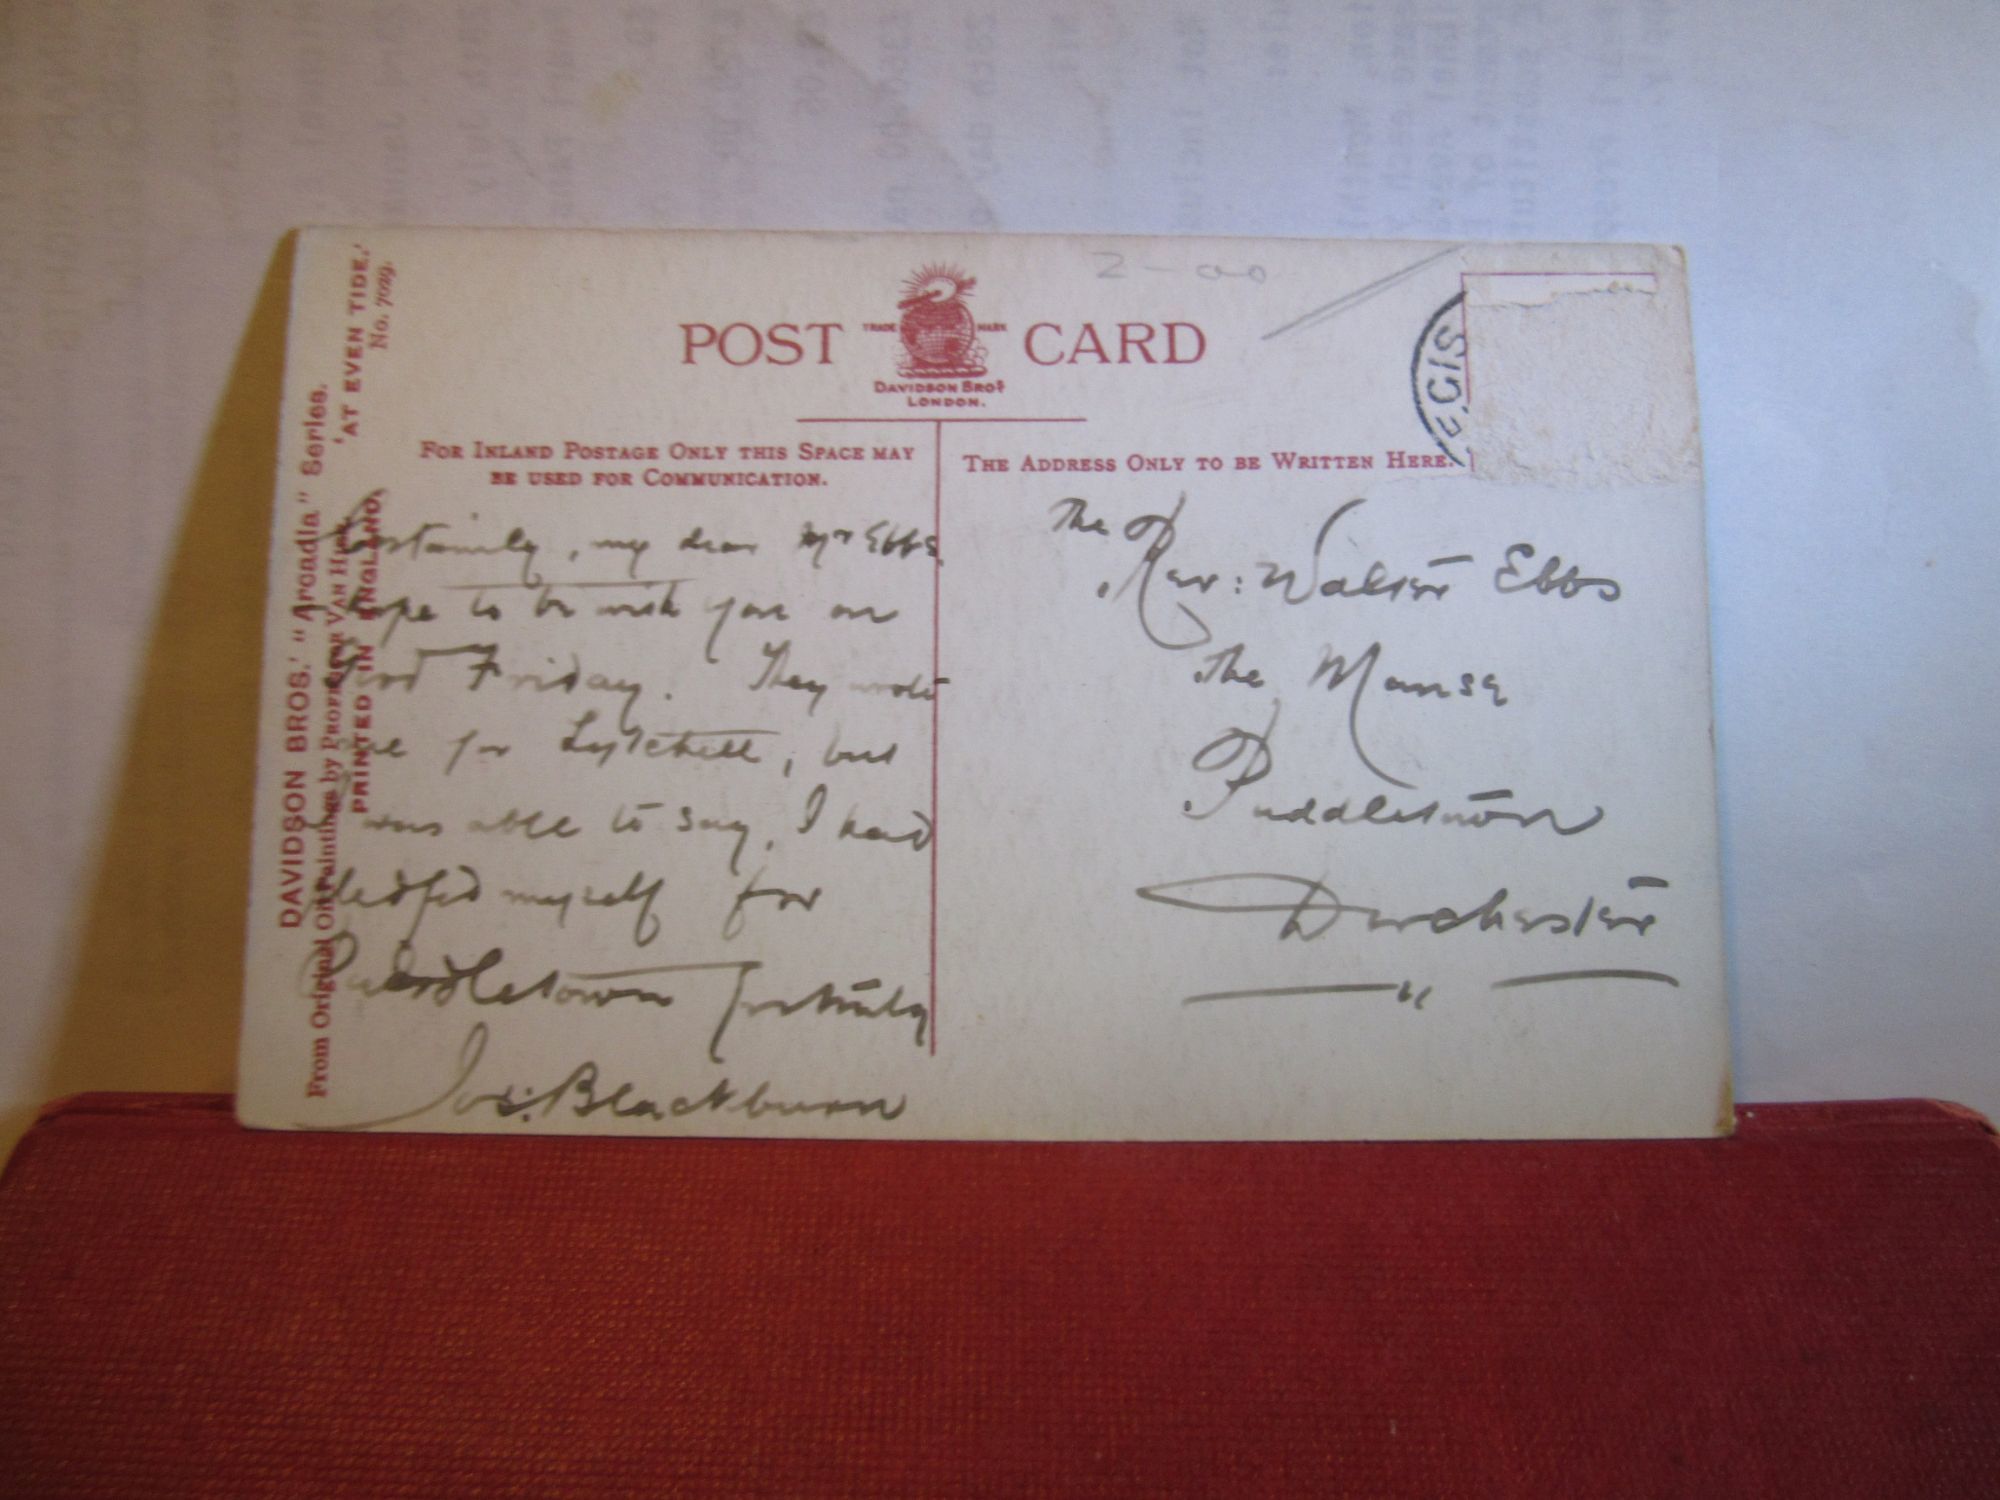 POST CARD
TRADE MARK
DAVIDSON BROS
LONDON.
2-00
FOR INLAND POSTAGE ONLY THIS SPACE MAY
BE USED FOR COMMUNICATION.
THE ADDRESS ONLY TO BE WRITTEN HERE.
DAVIDSON BROS.' "Arcadia" Series.
From Original Oil Paintings by PROFESSOR VAN
'AT EVEN TIDE.'
No. 7029.
PRINTED IN ENGLAND.
Certainly, my dear Mr Ebbs
hope to be with you on
Good Friday. They wrote
me for Lytchett, but
I was able to say, I had
pledged myself for
Puddletown
Jos: Blackburn
The
Rev: Walter Ebbs
The Manse
Puddletown
Dorchester